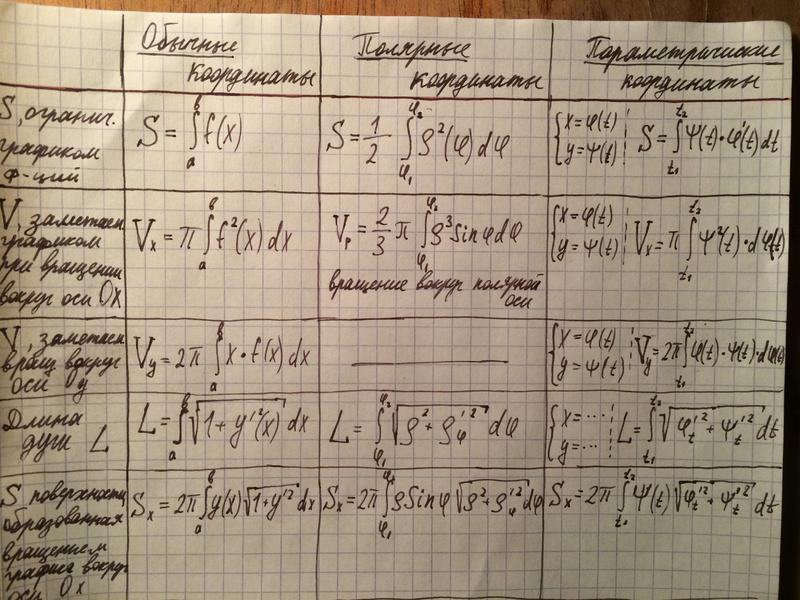 Обычные координаты
Полярные координаты
Параметрические координаты
S, огранич.
графиком
ф-ций
S = ∫_a^b f(x)
S = 1/2 ∫_{φ₁}^{φ₂} ρ²(φ) dφ
{ x = φ(t)
y = ψ(t)
S = ∫_{t₁}^{t₂} ψ(t)·φ'(t) dt
V, заметаем.
графиком
при вращении
вокруг оси Ox
V_x = π ∫_a^b f²(x) dx
V_p = 2/3 π ∫_{φ₁}^{φ₂} ρ³ Sin φ dφ
вращение вокруг полярной
оси
{ x = φ(t)
y = ψ(t)
V_x = π ∫_{t₁}^{t₂} ψ²(t)·dφ(t)
V, заметаем
вращ вокруг
оси y
V_y = 2π ∫_a^b x·f(x) dx
{ x = φ(t)
y = ψ(t)
V_y = 2π ∫_{t₁}^{t₂} φ(t)·ψ(t)·dφ(t)
Длина
дуги L
L = ∫_a^b √(1 + y'²(x)) dx
L = ∫_{φ₁}^{φ₂} √(ρ² + ρ'_φ²) dφ
{ x = ...
y = ...
L = ∫_{t₁}^{t₂} √(φ'_t² + ψ'_t²) dt
S поверхности,
образованная
вращением
графика вокруг
оси Ox
S_x = 2π ∫_a^b y(x) √(1 + y'²) dx
S_x = 2π ∫_{φ₁}^{φ₂} ρ Sin φ √(ρ² + ρ'_φ²) dφ
S_x = 2π ∫_{t₁}^{t₂} ψ(t) √(φ'_t² + ψ'_t²) dt